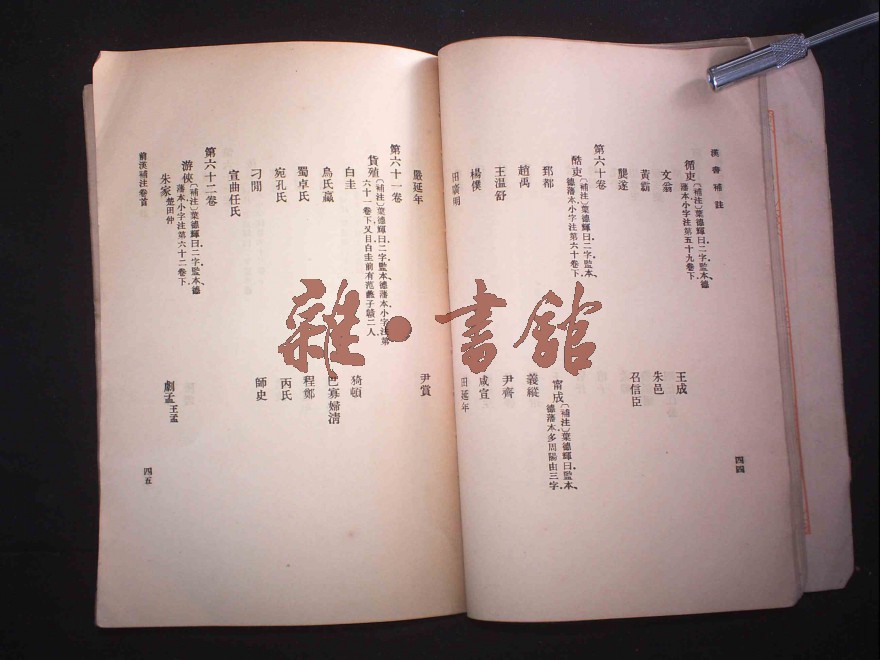 漢書補註
循吏〔補注〕葉德輝曰二字監本德
藩本小字注第五十九卷下
文翁
王成
黃霸
朱邑
龔遂
召信臣
第六十卷
酷吏〔補注〕葉德輝曰二字監本
德藩本小字注第六十卷下
甯成〔補注〕葉德輝曰監本
德藩本多周陽由三字
郅都
義縱
趙禹
尹齊
王溫舒
咸宣
楊僕
田廣明
田延年
四四
嚴延年
尹賞
第六十一卷
貨殖〔補注〕葉德輝曰二字監本德藩本小字注第
六十一卷下又目白圭前有范蠡子贛二人
白圭
猗頓
烏氏蠃
巴寡婦清
蜀卓氏
程鄭
宛孔氏
丙氏
刁閒
師史
宣曲任氏
第六十二卷
游俠〔補注〕葉德輝曰二字監本德
藩本小字注第六十二卷下
朱家楚田仲
劇孟王孟
前漢補注卷首
四五
雜·書館